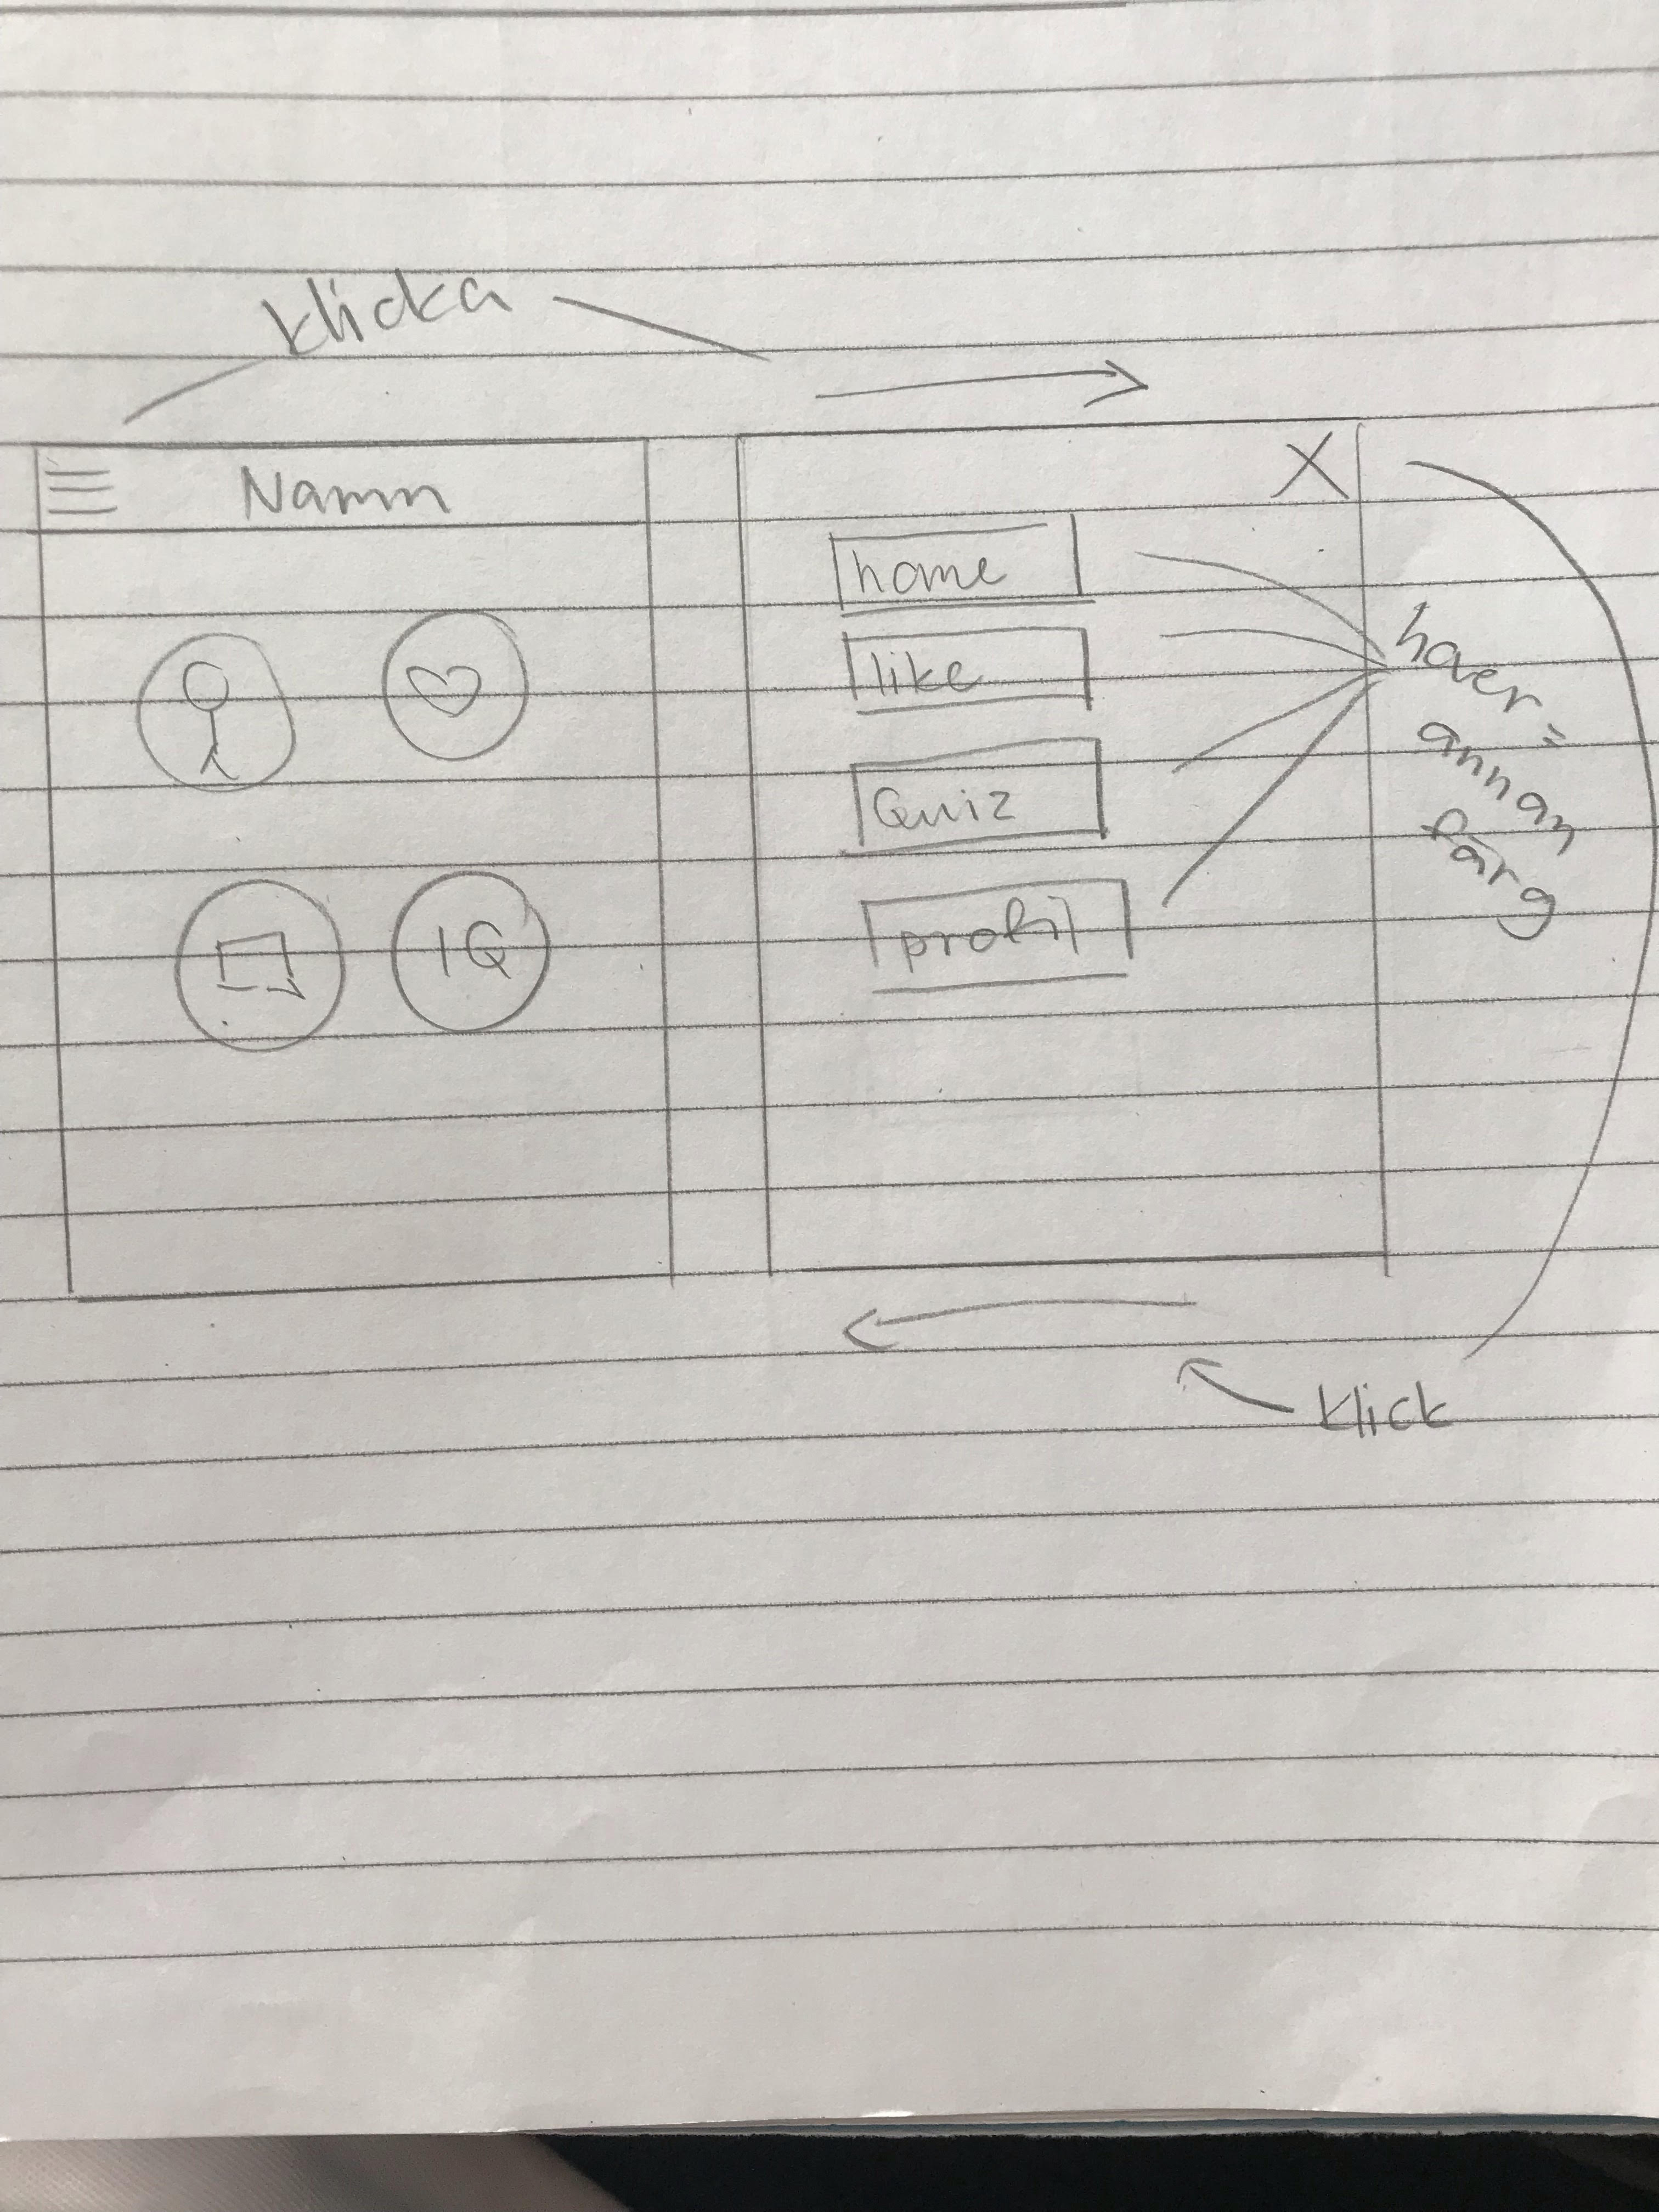 klicka
Namn
X
home
like
Quiz
profil
IQ
hover =
annan
färg
klick